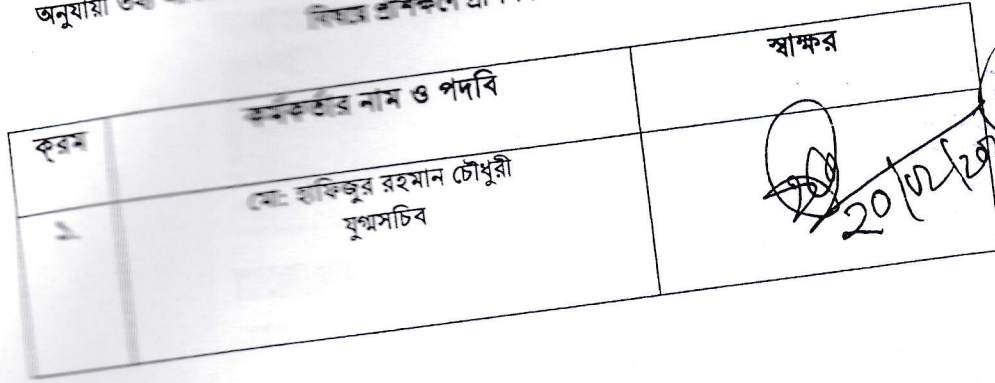 অনুযায়ী
করম কর্মকর্তার নাম ও পদবি স্বাক্ষর
১ মো: হাফিজুর রহমান চৌধুরী
যুগ্মসচিব
20/02/20